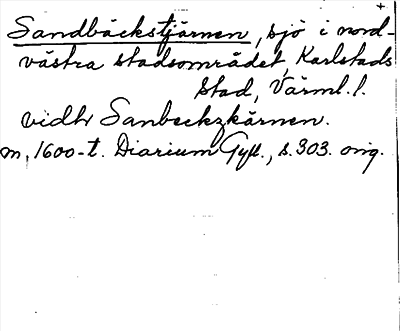 Sandbäckstjärnen, sjö i nord-
västra stadsområdet, Karlstads
stad, Värml. l.
vidhr Sanbeckzkärnen.
m. 1600-t. Diarium Gyll., s. 303. orig.